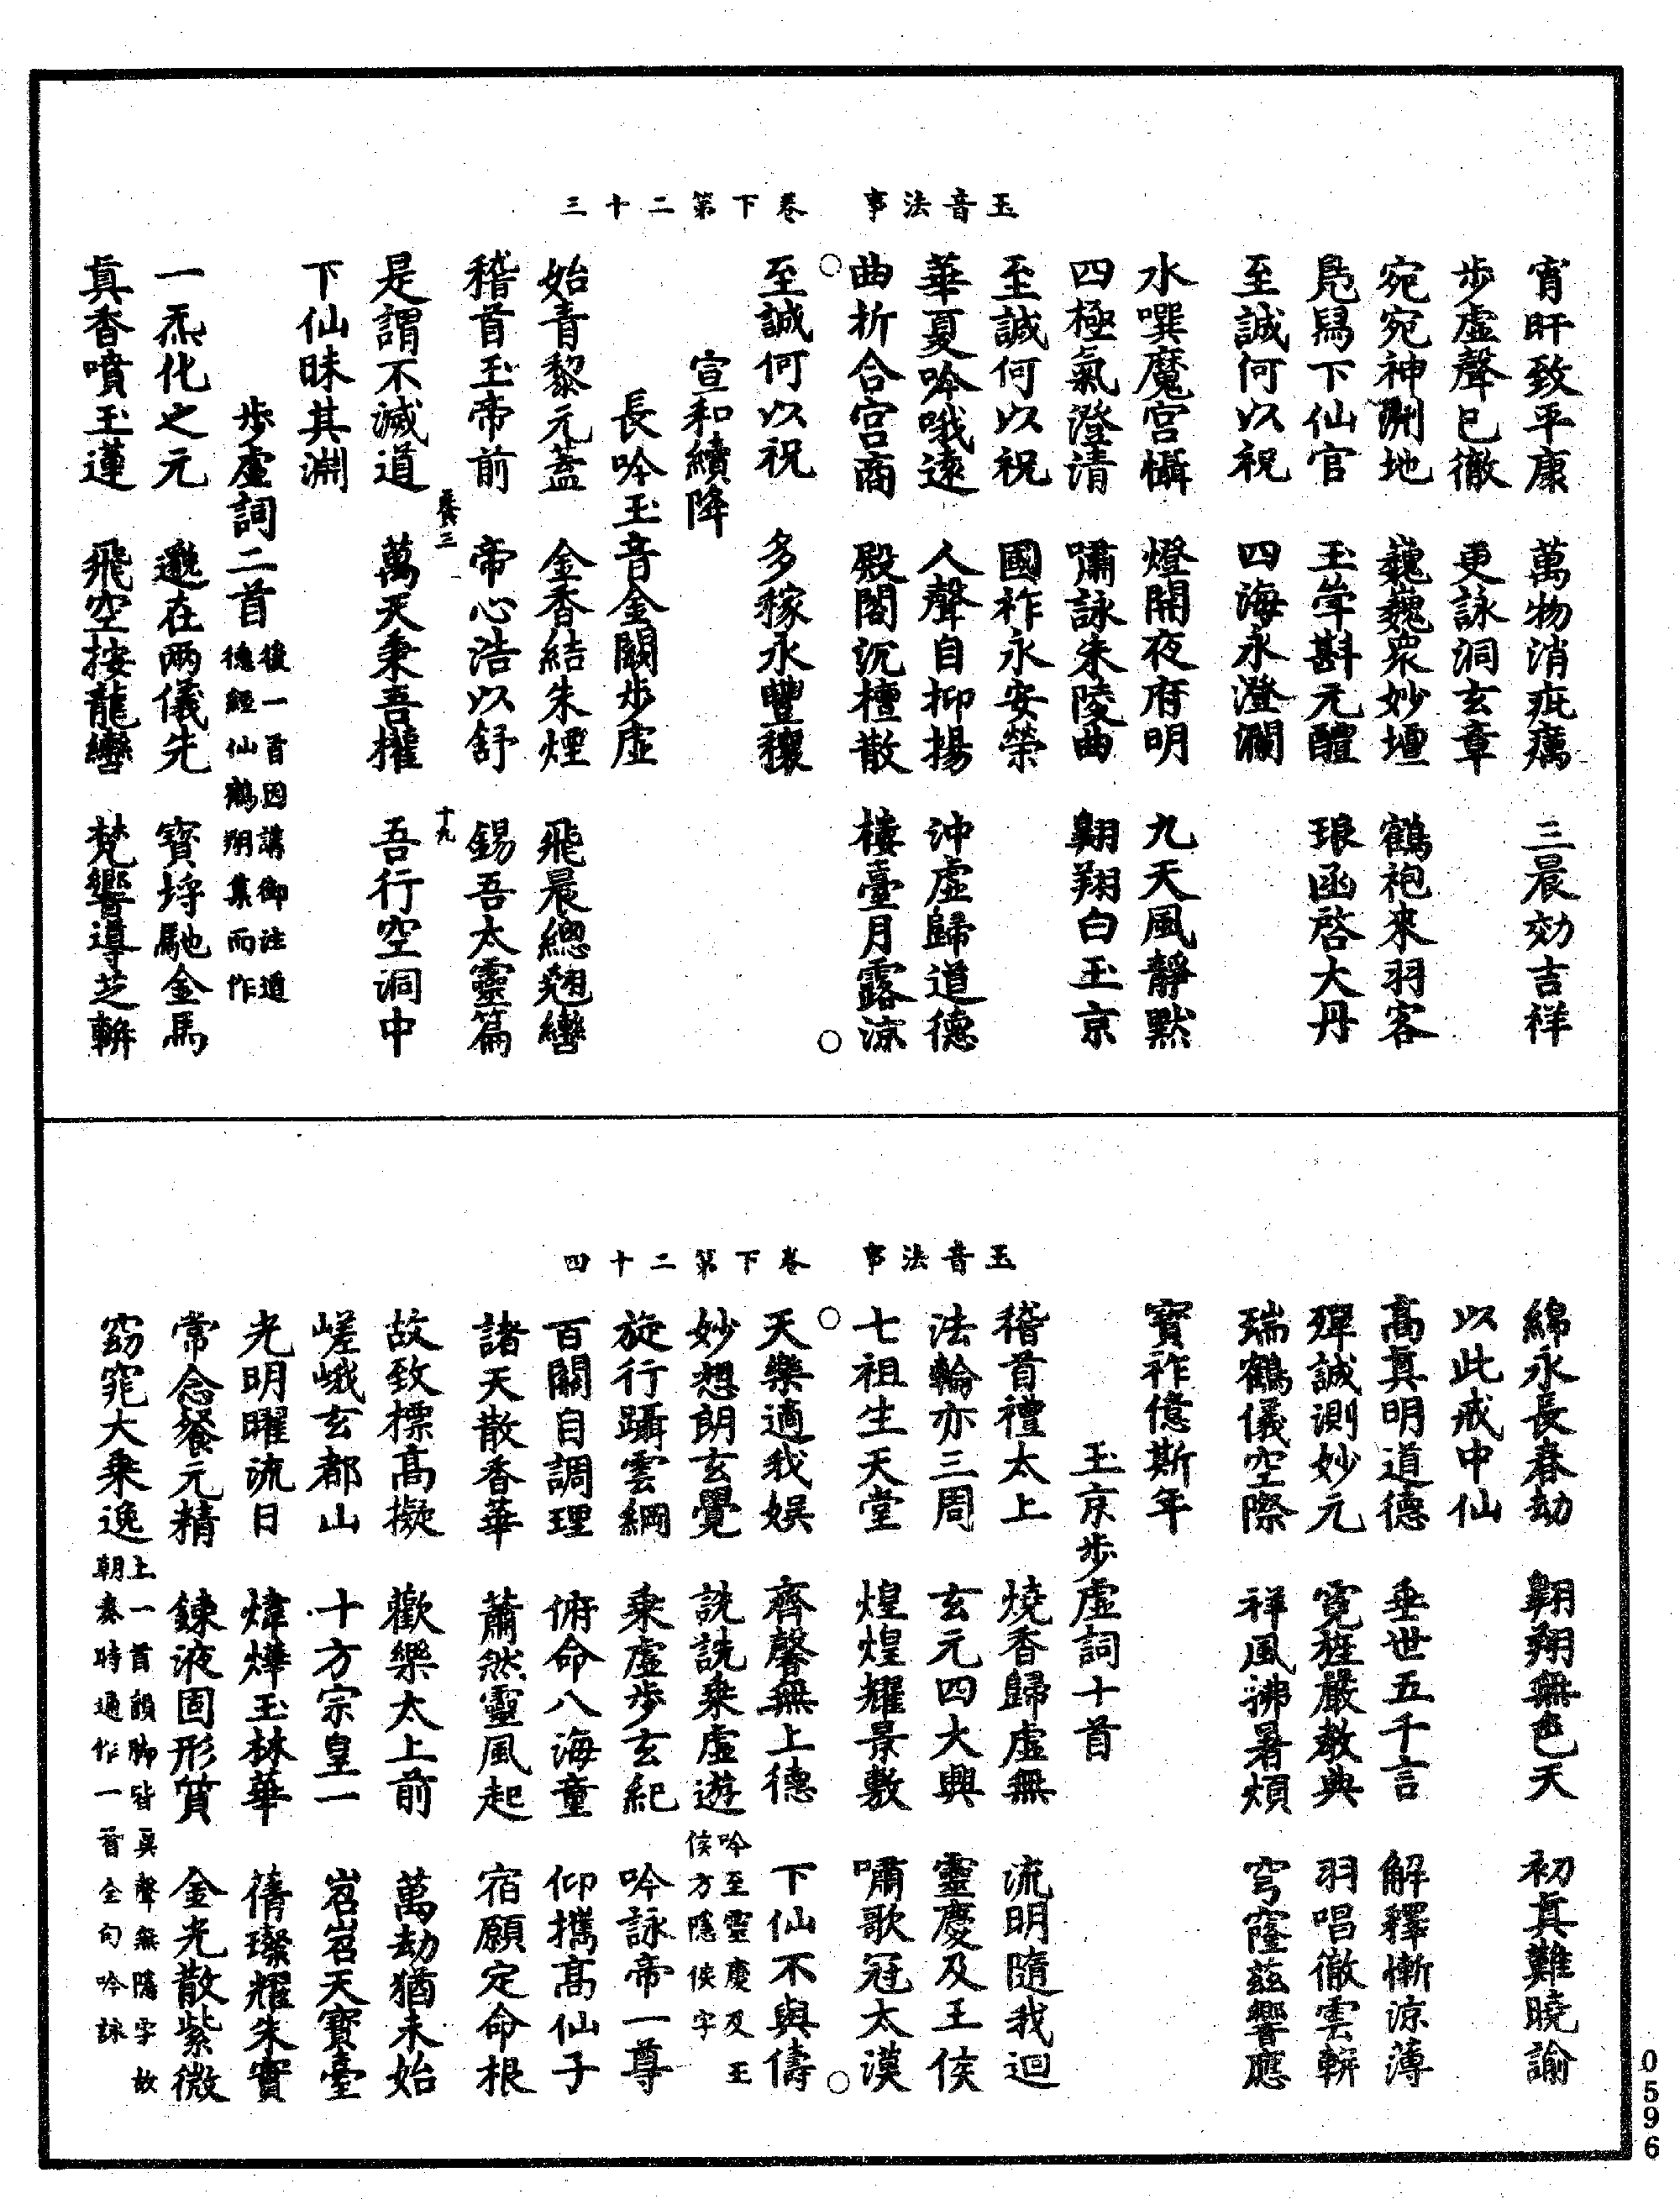 玉音法事　卷下第二十三
宵旰致平康　萬物消疵癘　三晨効吉祥
步虛聲已徹　更詠洞玄章
宛宛神淵地　巍巍眾妙壇　鶴袍來羽客
鳧舄下仙官　玉斝斟元醴　琅函啓大丹
至誠何以祝　四海永澄瀾
水噀魔宮懾　燈開夜府明　九天風靜默
四極氣澄清　嘯詠朱陵曲　翱翔白玉京
至誠何以祝　國祚永安榮
華夏吟哦遠　人聲自抑揚　沖虛歸道德
曲折合宮商　殿閣沉檀散　樓臺月露涼
至誠何以祝　多稼永豐穰
宣和續降
長吟玉音金闕步虛
始青黎元蓋　金香結朱煙　飛晨總翹轡
稽首玉帝前　帝心浩以舒　錫吾太靈篇
養三　十九
是謂不滅道　萬天秉吾權　吾行空洞中
下仙昧其淵
步虛詞二首　後一首因講御注道
德經仙鶴翔集而作
一炁化之元　邈在兩儀先　寶埒馳金馬
真香噴玉蓮　飛空按龍轡　梵響導芝軿
玉音法事　卷下第二十四
綿永長春劫　翱翔無色天　初真難曉諭
以此戒中仙
高真明道德　垂世五千言　解釋慚涼薄
殫誠測妙元　霓旌嚴教典　羽唱徹雲軿
瑞鶴儀空際　祥風拂暑煩　穹窿茲響應
寶祚億斯年
玉京步虛詞十首
稽首禮太上　燒香歸虛無　流明隨我迴
法輪亦三周　玄元四大興　靈慶及王侯
七祖生天堂　煌煌耀景敷　嘯歌冠太漠
天樂適我娛　齊馨無上德　下仙不與儔
妙想朗玄覺　詵詵乘虛遊　吟至靈慶及王
侯方隱侯字
旋行躡雲綱　乘虛步玄紀　吟詠帝一尊
百關自調理　俯命八海童　仰攜高仙子
諸天散香華　蕭然靈風起　宿願定命根
故致標高擬　歡樂太上前　萬劫猶未始
嵯峨玄都山　十方宗皇一　岧岧天寶臺
光明曜流日　煒燁玉林華　蒨璨耀朱實
常念餐元精　鍊液固形質　金光散紫微
窈窕大乘逸　上一首韻腳皆異聲無隱字故
朝奏時通作一首全句吟詠
0596